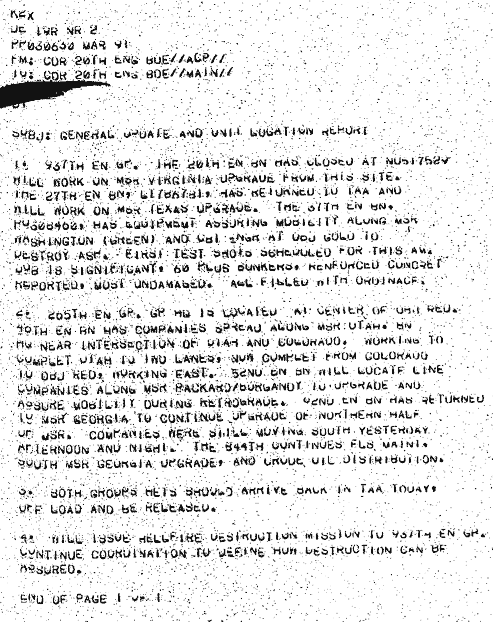 DE IWR NR 2
PP030630 MAR 91
FM: CDR 20TH ENG BDE//ACP//
TO: CDR 20TH ENG BDE//MAIN//
BT
SUBJ: GENERAL UPDATE AND UNIT LOCATION REPORT
1. 937TH EN GP. THE 20TH EN BN HAS CLOSED AT
WILL WORK ON MSR VIRGINIA UPGRADE FROM THIS SITE.
THE 27TH EN BN, HAS RETURNED TO TAA AND
WILL WORK ON MSR TEXAS UPGRADE. THE 37TH EN BN,
HAS EQUIPMENT ASSURING MOBILITY ALONG MSR
WASHINGTON (GREEN) AND AT OBJ GOLD TO
DESTROY ASP. FIRST TEST SHOTS SCHEDULED FOR THIS AM.
JOB IS SIGNIFICANT, 60 PLUS BUNKERS, RENFORCED CONCRET
REPORTED, MOST UNDAMAGED. ALL FILLED WITH ORDINACE.
2. 265TH EN GP. GP HQ IS LOCATED AT CENTER OF OBJ RED.
EN BN HAS COMPANIES SPREAD ALONG MSR UTAH. BN
HQ NEAR INTERSECTION OF UTAH AND COLORADO. WORKING TO
COMPLET UTAH TO TWO LANES, NOW COMPLET FROM COLORADO
TO OBJ RED, WORKING EAST. 52ND EN BN WILL LOCATE LINE
COMPANIES ALONG MSR PACKARD/BURGANDY TO UPGRADE AND
ASSURE MOBILITY DURING RETROGRADE. 62ND EN BN HAS RETURNED
TO MSR GEORGIA TO CONTINUE UPGRADE OF NORTHERN HALF
OF MSR. COMPANIES WERE STILL MOVING SOUTH YESTERDAY
AFTERNOON AND NIGHT. THE 844TH CONTINUES FLS MAINT.
SOUTH MSR GEORGIA UPGRADE, AND CRUDE OIL DISTRIBUTION.
3. BOTH GROUPS HETS SHOULD ARRIVE BACK IN TAA TODAY,
OFF LOAD AND BE RELEASED.
4. WILL ISSUE HELLFIRE DESTRUCTION MISSION TO 937TH EN GP.
CONTINUE COORDINATION TO DEFINE HOW DESTRUCTION CAN BE
ASSURED.
END OF PAGE 1 OF 1